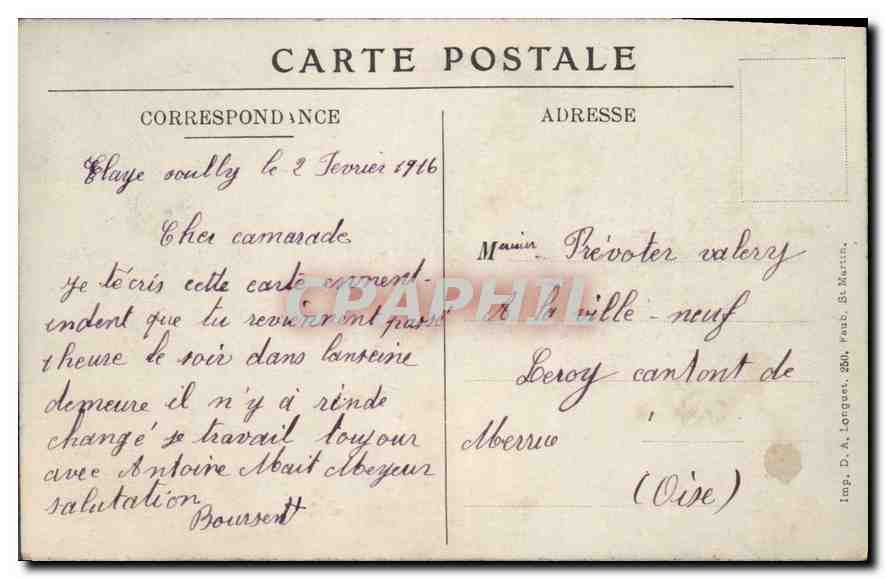 CARTE POSTALE
CORRESPONDANCE
Claye soully le 2 Fevrier 1916
Cher camarade
Je técris cette carte ennent-
indent que tu reviennent passé
1 heure le soir dans lanseine
demeure il n'y à rinde
changé se travail toujour
avec Antoine Mait Meyeur
salutation
Boursent
ADRESSE
M Prévoter valery
A la ville-neuf
Leroy cantont de
Merrue
(Oise)
Imp. D. A. Longuet, 250, Faub. St Martin.
CPAPHIL